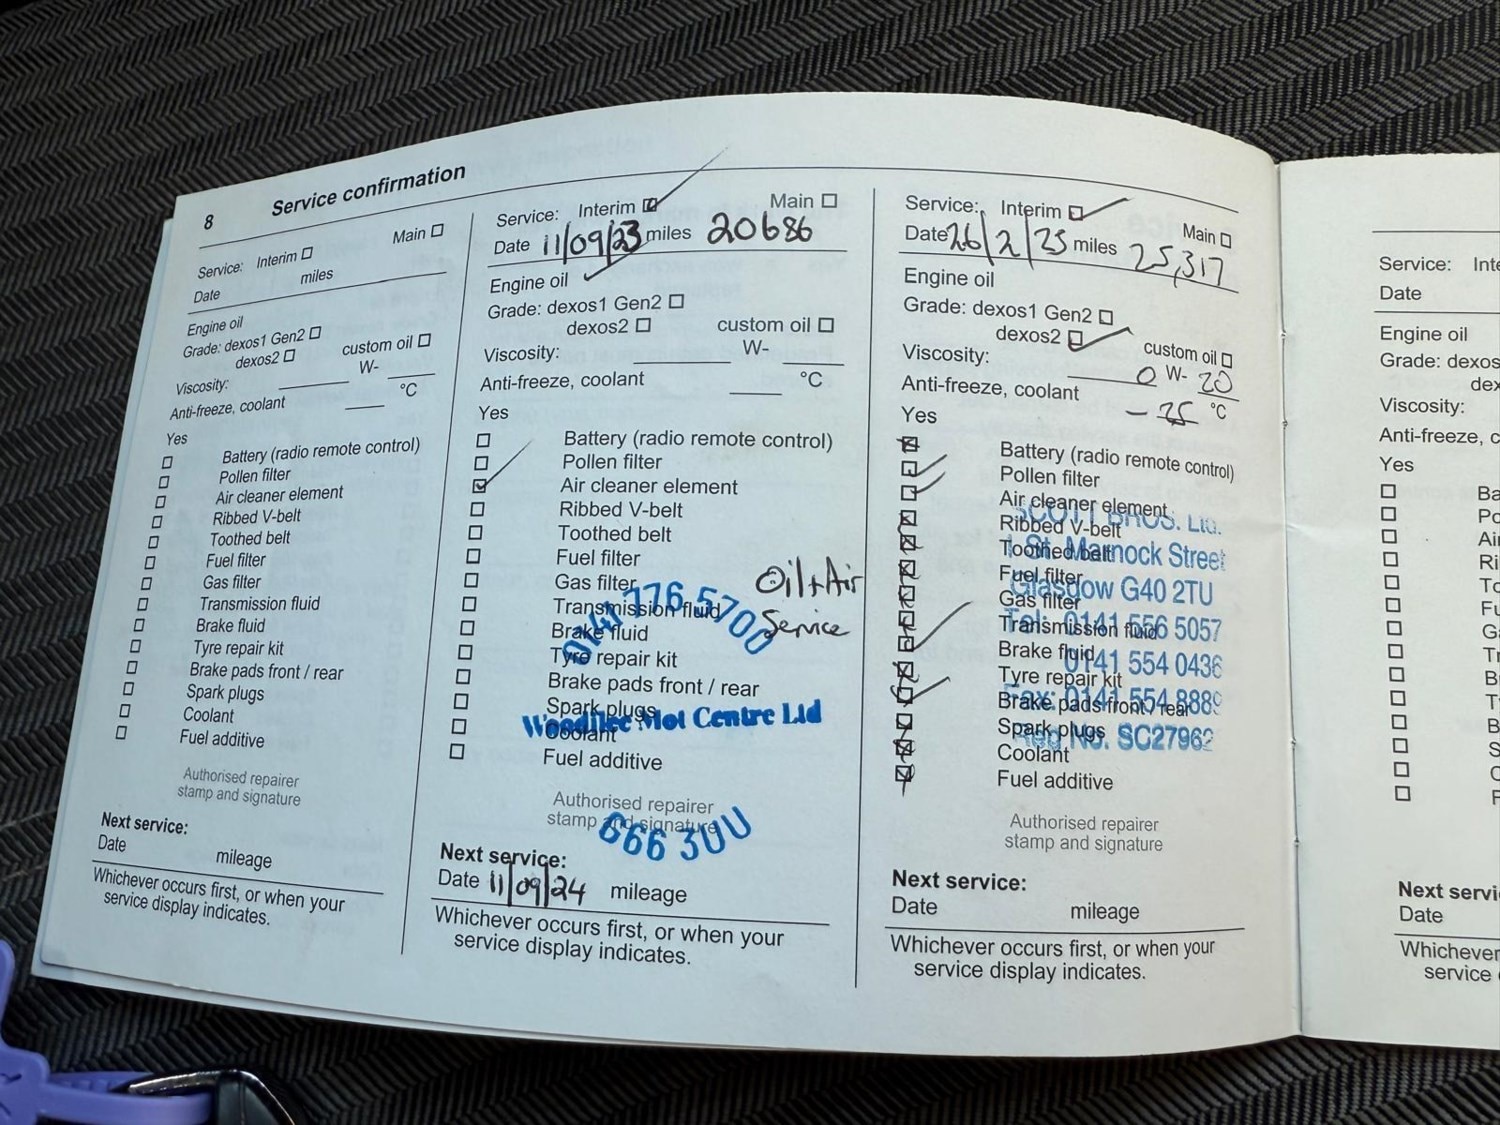 8 Service confirmation
Service: Interim Main
Date miles
Engine oil
Grade: dexos1 Gen2
dexos2 custom oil
Viscosity: W-
Anti-freeze, coolant °C
Yes
Battery (radio remote control)
Pollen filter
Air cleaner element
Ribbed V-belt
Toothed belt
Fuel filter
Gas filter
Transmission fluid
Brake fluid
Tyre repair kit
Brake pads front / rear
Spark plugs
Coolant
Fuel additive
Authorised repairer
stamp and signature
Next service:
Date mileage
Whichever occurs first, or when your
service display indicates.
Service: Interim Main
Date 11/09/23 miles 20686
Engine oil
Grade: dexos1 Gen2
dexos2 custom oil
Viscosity: W-
Anti-freeze, coolant °C
Yes
Battery (radio remote control)
Pollen filter
Air cleaner element
Ribbed V-belt
Toothed belt
Fuel filter
Gas filter
Oil + Air
Service
Transmission fluid
0141 776 5700
Brake fluid
Tyre repair kit
Brake pads front / rear
Spark plugs
Woodilee Mot Centre Ltd
Coolant
Fuel additive
Authorised repairer
stamp and signature
G66 3UU
Next service:
Date 11/09/24 mileage
Whichever occurs first, or when your
service display indicates.
Service: Interim Main
Date 26/2/25 miles 25,317
Engine oil
Grade: dexos1 Gen2
dexos2 custom oil
Viscosity: 0 W- 20
Anti-freeze, coolant -25 °C
Yes
Battery (radio remote control)
Pollen filter
Air cleaner element
Ribbed V-belt
Toothed belt
Fuel filter
Gas filter
Transmission fluid
Brake fluid
Tyre repair kit
Brake pads front / rear
Spark plugs
Coolant
Fuel additive
SCOTT BROS. Ltd.
1 St. Marnock Street
Glasgow G40 2TU
Tel: 0141 556 5057
0141 554 0436
Fax: 0141 554 8889
Reg No. SC27962
Authorised repairer
stamp and signature
Next service:
Date mileage
Whichever occurs first, or when your
service display indicates.
Service: Inte
Date
Engine oil
Grade: dexos
dex
Viscosity:
Anti-freeze, c
Yes
Ba
Po
Air
Ri
To
Fu
Ga
Tr
B
T
B
S
C
F
Next servi
Date
Whichever
service